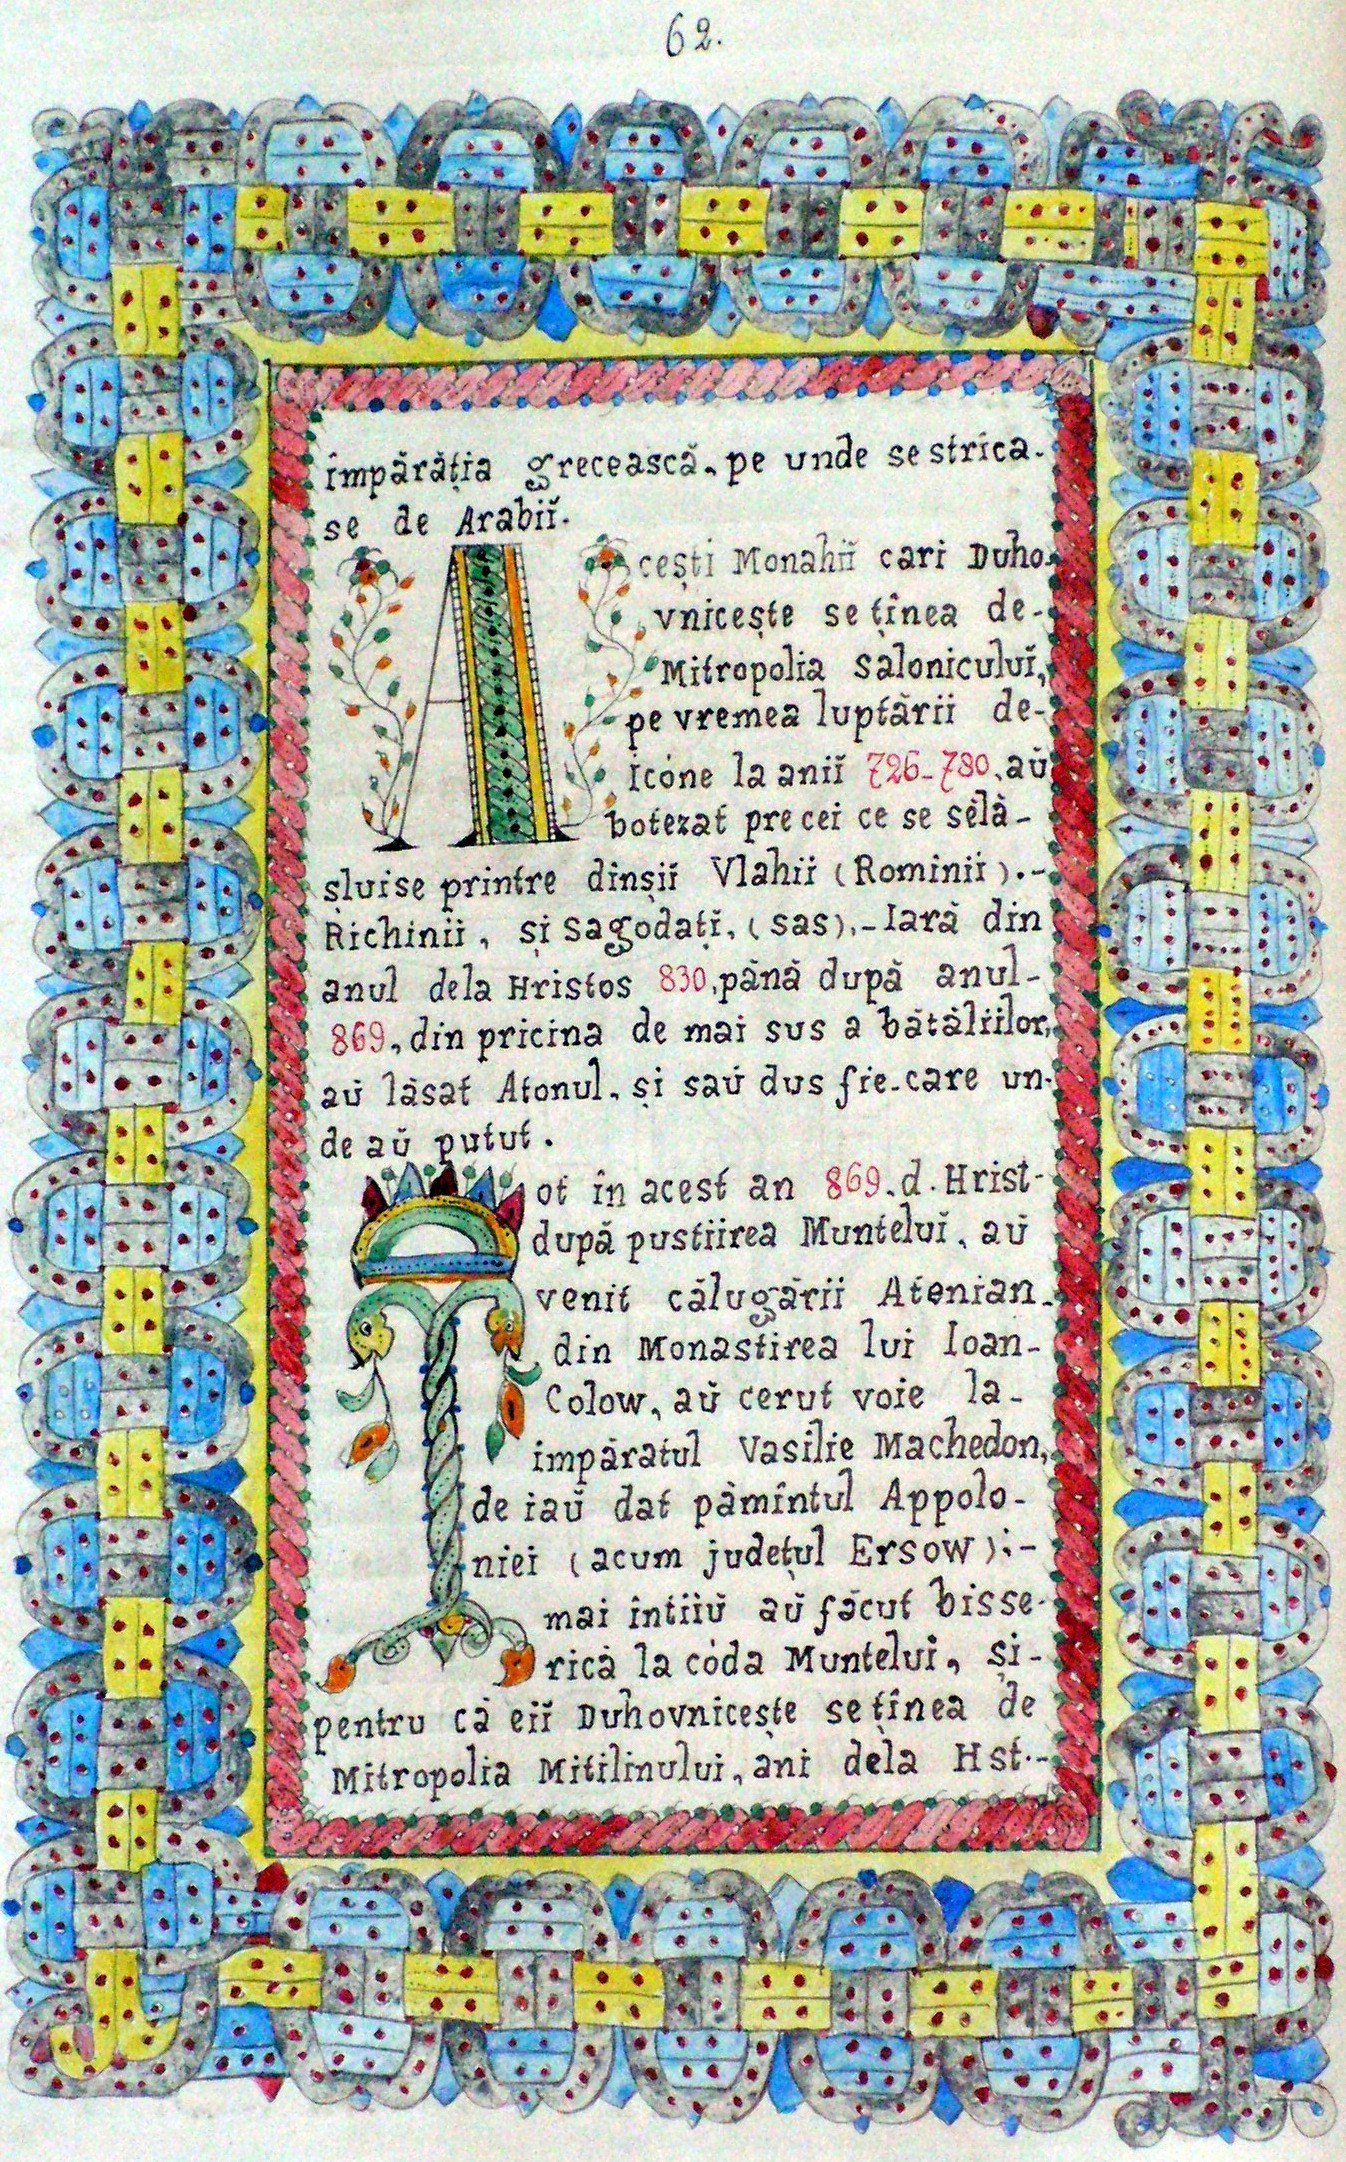 62.
împărăția grecească, pe unde se strica-
se de Arabiĭ.
Acești Monahiĭ cari Duho-
vnicește se țînea de-
Mitropolia Saloniculuĭ,
pe vremea luptării de-
Icóne la aniĭ 726-780, aŭ
botezat pre cei ce se sălă-
șluise printre dinșiĭ Vlahiĭ (Rominiĭ).-
Richinii, și Sagodațĭ, (sas).-Iară din
anul dela Hristos 830, până după anul-
869, din pricina de mai sus a bătăliilor,
aŭ lăsat Atonul, și saŭ dus fie-care un-
de aŭ putut.
Tot în acest an 869, d. Hrist-
după pustiirea Munteluĭ, aŭ
venit călugării Atenian-
din Monastirea lui Ioan-
Colow, aŭ cerut voie la-
impăratul Vasilie Machedon,
de iaŭ dat pămîntul Appolo-
niei (acum județul Ersow);-
mai întiiŭ aŭ făcut bisse-
rică la códa Munteluĭ, și-
pentru că eiĭ Duhovnicește se țînea de
Mitropolia Mitilinului, ani dela Hst.-